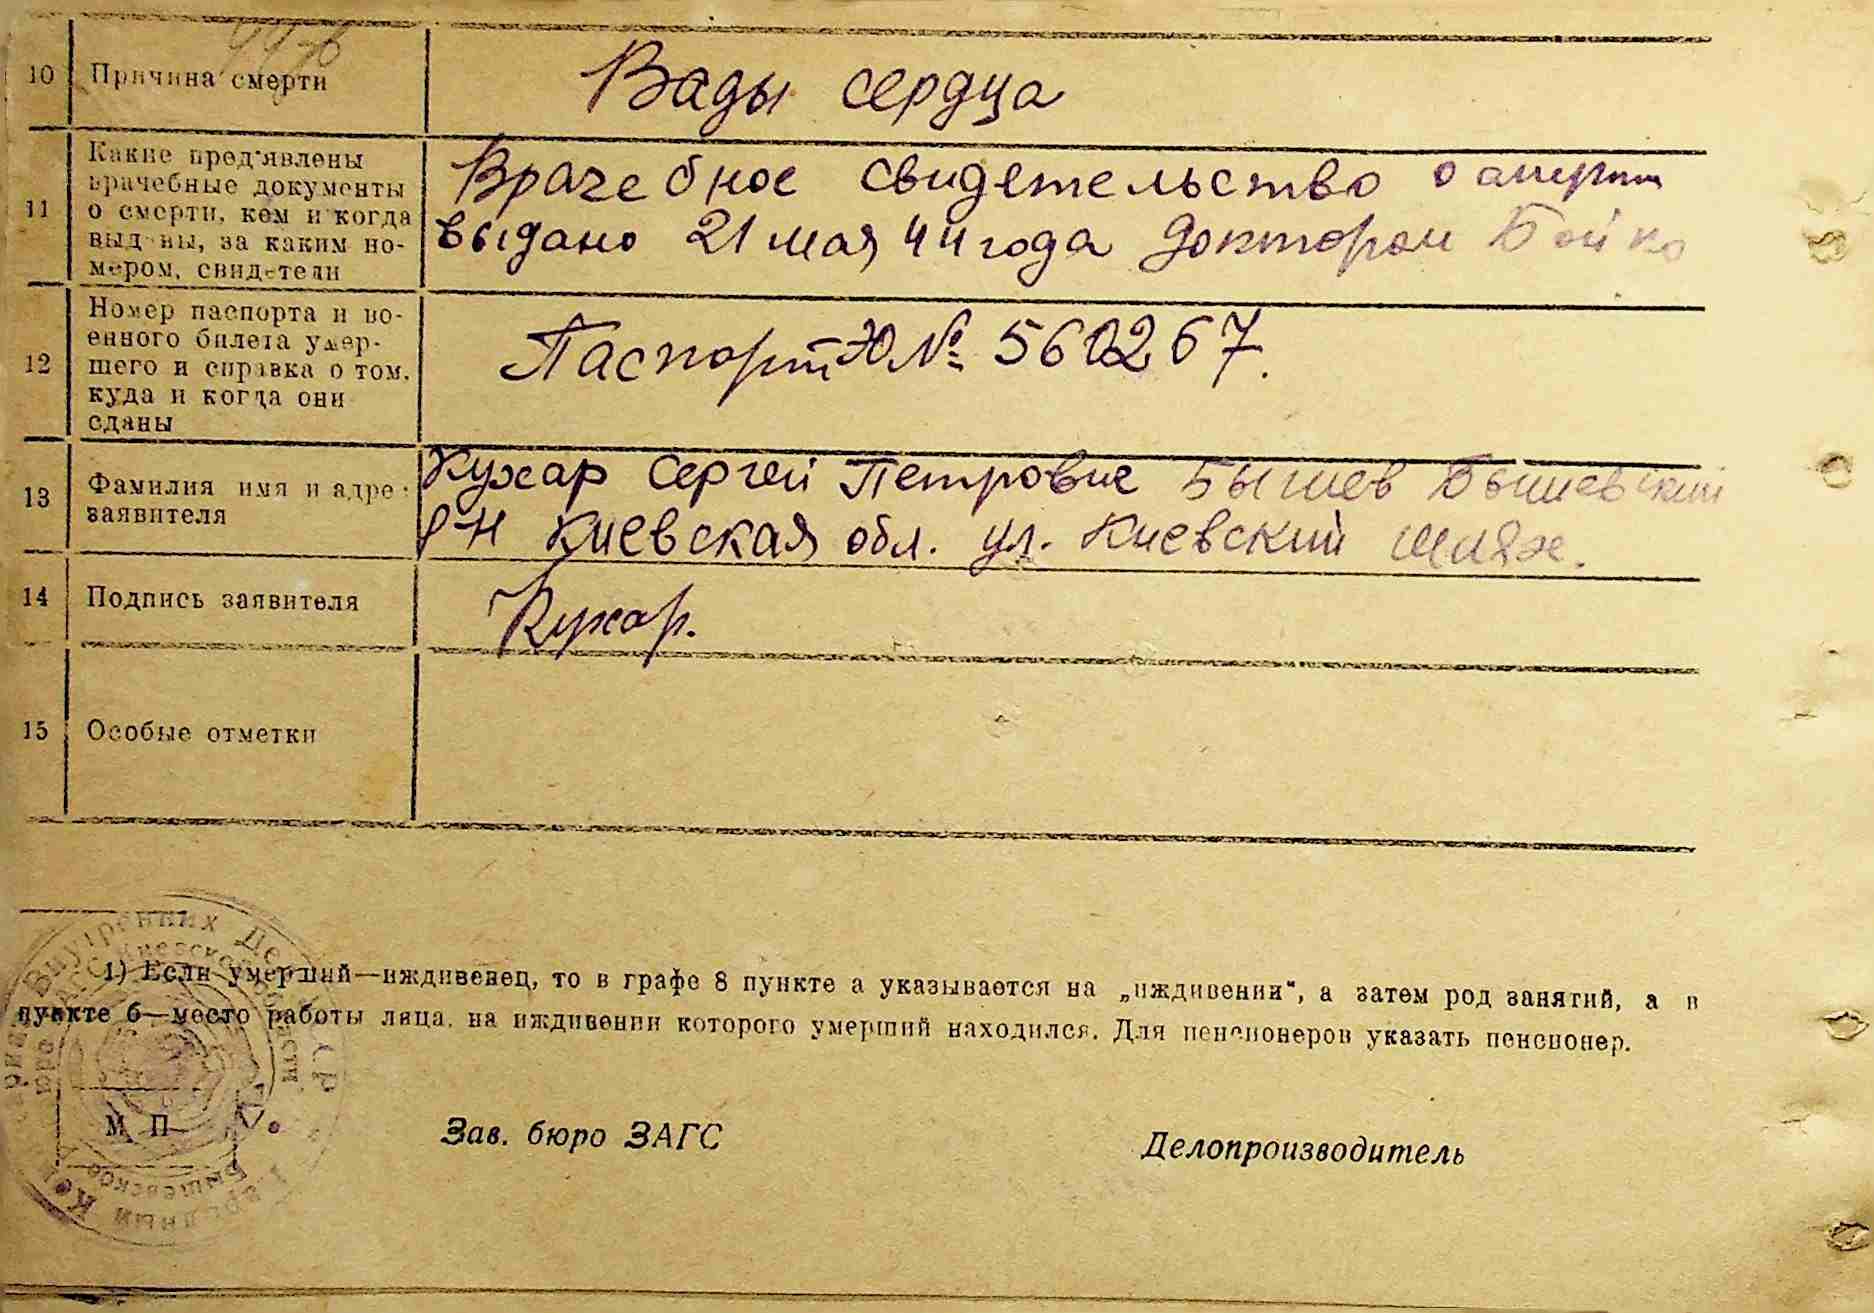 10 Причина смерти Вады сердца
11 Какие пред'явлены
врачебные документы
о смерти, кем и когда
выданы, за каким но-
мером, свидетели
Врачебное свидетельство о смерти
выдано 21 мая 44 года доктором Бойко
12 Номер паспорта и во-
енного билета умер-
шего и справка о том,
куда и когда они
сданы
Паспорт ЭЮ № 560267.
13 Фамилия имя и адрес
заявителя
Кухар Сергей Петрович Бышев Бышевский
р-н Киевская обл. ул. Киевский шлях.
14 Подпись заявителя Кухар.
15 Особые отметки
1) Если умерший—иждивенец, то в графе 8 пункте а указывается на „иждивении“, а затем род занятий, а в
пункте б—место работы лица, на иждивении которого умерший находился. Для пенсионеров указать пенсионер.
Внутренних Дел
Киевской области
Бышевское
М П
Зав. бюро ЗАГС Делопроизводитель